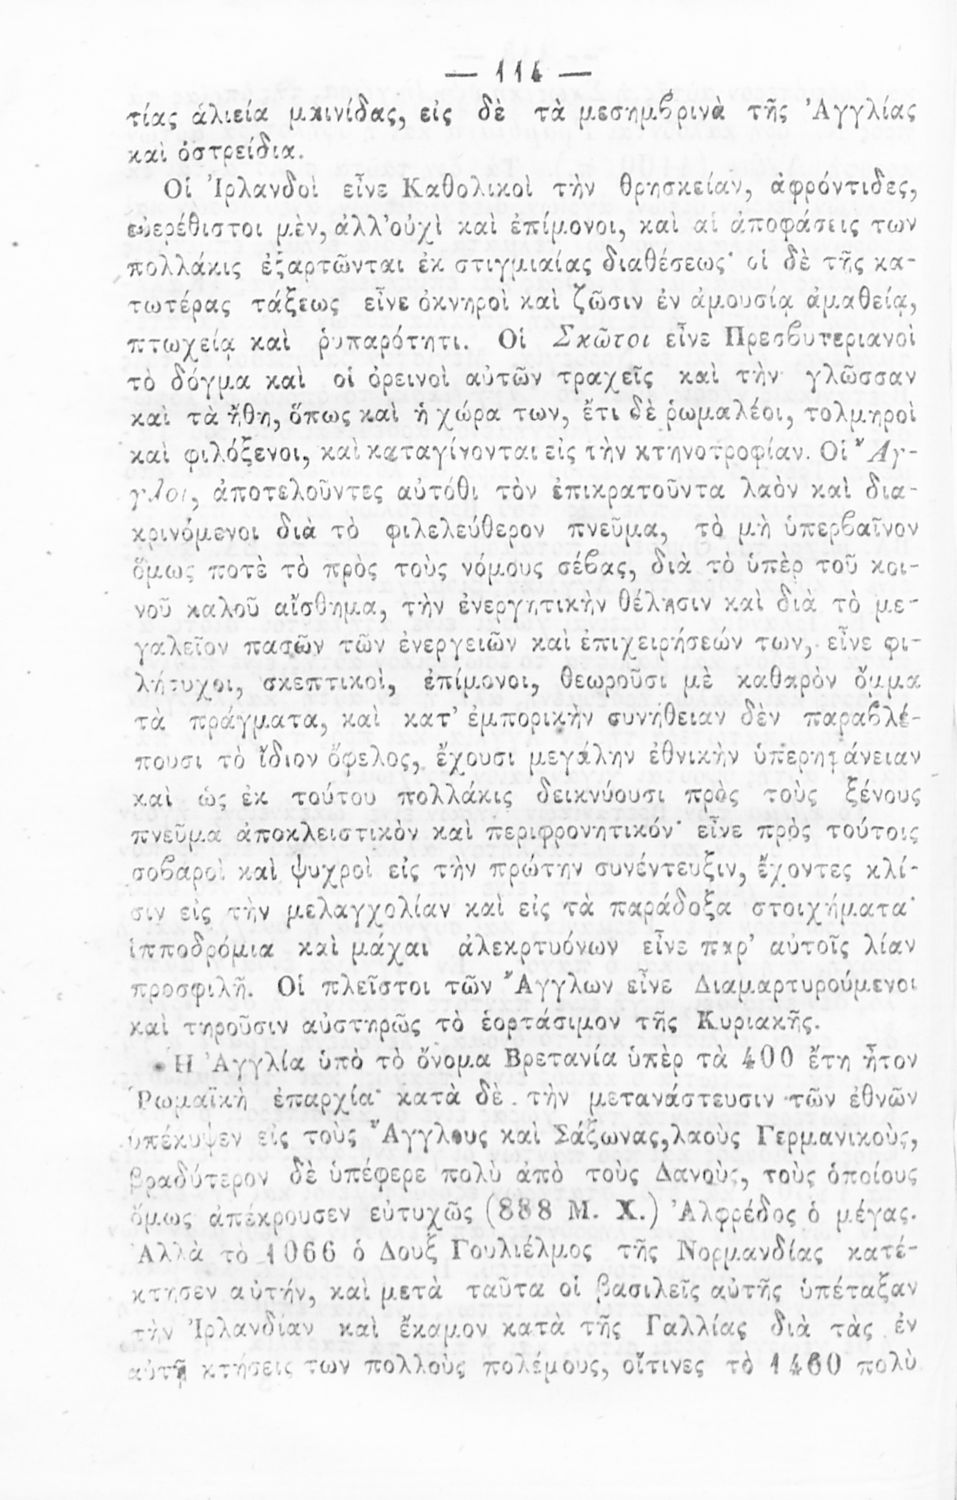 — 114 —
τίας ἁλιεία μαινίδας, εἰς δὲ τὰ μεσημβρινὰ τῆς Ἀγγλίας
καὶ ὀστρείδια.
Οἱ Ἰρλανδοὶ εἶνε Καθολικοὶ τὴν θρησκείαν, ἀφρόντιδες,
εὐερέθιστοι μὲν, ἀλλ' οὐχὶ καὶ ἐπίμονοι, καὶ αἱ ἀποφάσεις των
πολλάκις ἐξαρτῶνται ἐκ στιγμιαίας διαθέσεως· οἱ δὲ τῆς κα-
τωτέρας τάξεως εἶνε ὀκνηροὶ καὶ ζῶσιν ἐν ἀμουσίᾳ ἀμαθείᾳ,
πτωχείᾳ καὶ ῥυπαρότητι. Οἱ Σκῶτοι εἶνε Πρεσβυτεριανοὶ
τὸ δόγμα καὶ οἱ ὀρεινοὶ αὐτῶν τραχεῖς καὶ τὴν γλῶσσαν
καὶ τὰ ἤθη, ὅπως καὶ ἡ χώρα των, ἔτι δὲ ῥωμαλέοι, τολμηροὶ
καὶ φιλόξενοι, καὶ καταγίνονται εἰς τὴν κτηνοτροφίαν. Οἱ Ἄγ-
γλοι, ἀποτελοῦντες αὐτόθι τὸν ἐπικρατοῦντα λαὸν καὶ δια-
κρινόμενοι διὰ τὸ φιλελεύθερον πνεῦμα, τὸ μὴ ὑπερβαῖνον
ὅμως ποτὲ τὸ πρὸς τοὺς νόμους σέβας, διὰ τὸ ὑπὲρ τοῦ κοι-
νοῦ καλοῦ αἴσθημα, τὴν ἐνεργητικὴν θέλησιν καὶ διὰ τὸ με-
γαλεῖον πασῶν τῶν ἐνεργειῶν καὶ ἐπιχειρήσεών των, εἶνε φι-
λήσυχοι, σκεπτικοὶ, ἐπίμονοι, θεωροῦσι μὲ καθαρὸν ὄμμα
τὰ πράγματα, καὶ κατ' ἐμπορικὴν συνήθειαν δὲν παραβλέ-
πουσι τὸ ἴδιον ὄφελος, ἔχουσι μεγάλην ἐθνικὴν ὑπερηφάνειαν
καὶ ὡς ἐκ τούτου πολλάκις δεικνύουσι πρὸς τοὺς ξένους
πνεῦμα ἀποκλειστικὸν καὶ περιφρονητικόν· εἶνε πρὸς τούτοις
σοβαροὶ καὶ ψυχροὶ εἰς τὴν πρώτην συνέντευξιν, ἔχοντες κλί-
σιν εἰς τὴν μελαγχολίαν καὶ εἰς τὰ παράδοξα στοιχήματα·
ἱπποδρόμια καὶ μάχαι ἀλεκρτυόνων εἶνε παρ' αὐτοῖς λίαν
προσφιλῆ. Οἱ πλεῖστοι τῶν Ἄγγλων εἶνε Διαμαρτυρούμενοι
καὶ τηροῦσιν αὐστηρῶς τὸ ἑορτάσιμον τῆς Κυριακῆς.
Ἡ Ἀγγλία ὑπὸ τὸ ὄνομα Βρετανία ὑπὲρ τὰ 400 ἔτη ἦτον
Ῥωμαϊκὴ ἐπαρχία· κατὰ δὲ τὴν μετανάστευσιν τῶν ἐθνῶν
ὑπέκυψεν εἰς τοὺς Ἄγγλους καὶ Σάξωνας, λαοὺς Γερμανικοὺς,
βραδύτερον δὲ ὑπέφερε πολὺ ἀπὸ τοὺς Δανοὺς, τοὺς ὁποίους
ὅμως ἀπέκρουσεν εὐτυχῶς (888 Μ. Χ.) Ἀλφρέδος ὁ μέγας.
Ἀλλὰ τὸ 1066 ὁ Δουξ Γουλιέλμος τῆς Νορμανδίας κατέ-
κτησεν αὐτήν, καὶ μετὰ ταῦτα οἱ βασιλεῖς αὐτῆς ὑπέταξαν
τὴν Ἰρλανδίαν καὶ ἔκαμον κατὰ τῆς Γαλλίας διὰ τὰς ἐν
αὐτῇ κτήσεις των πολλοὺς πολέμους, οἵτινες τὸ 1460 πολὺ